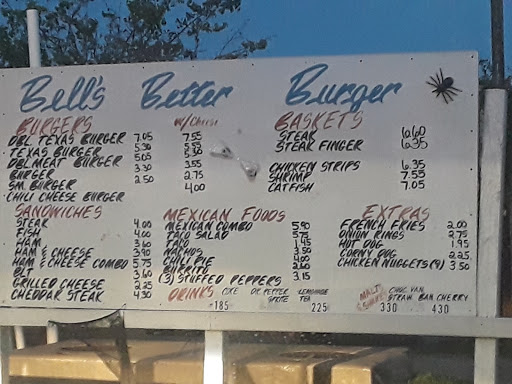 Bell's Better Burger
BURGERS w/Cheese
DBL. TEXAS BURGER 7.05 7.55
TEXAS BURGER 5.30 5.55
DBL MEAT BURGER 5.05 5.30
BURGER 3.30 3.55
SM. BURGER 2.50 2.75
CHILI CHEESE BURGER 4.00
BASKETS
STEAK 6.60
STEAK FINGER 6.35
CHICKEN STRIPS 6.35
SHRIMP 7.55
CATFISH 7.05
SANDWICHES
STEAK 4.00
FISH 4.00
HAM 3.60
HAM & CHEESE 3.90
HAM & CHEESE COMBO 5.75
BLT 3.60
GRILLED CHEESE 2.25
CHEDDAR STEAK 4.30
MEXICAN FOODS
MEXICAN COMBO 5.90
TACO SALAD 5.75
TACO 1.45
NACHOS 3.50
CHILI PIE 4.00
BURRITO 2.60
(3) STUFFED PEPPERS 3.15
EXTRAS
FRENCH FRIES 2.00
ONION RINGS 2.75
HOT DOG 1.95
CORNY DOG 2.25
CHICKEN NUGGETS (9) 3.50
DRINKS COKE DR. PEPPER LEMONADE
SPRITE TEA
185 225
MALT CHOC. VAN.
SHAKE STRAW. BAN. CHERRY
330 430